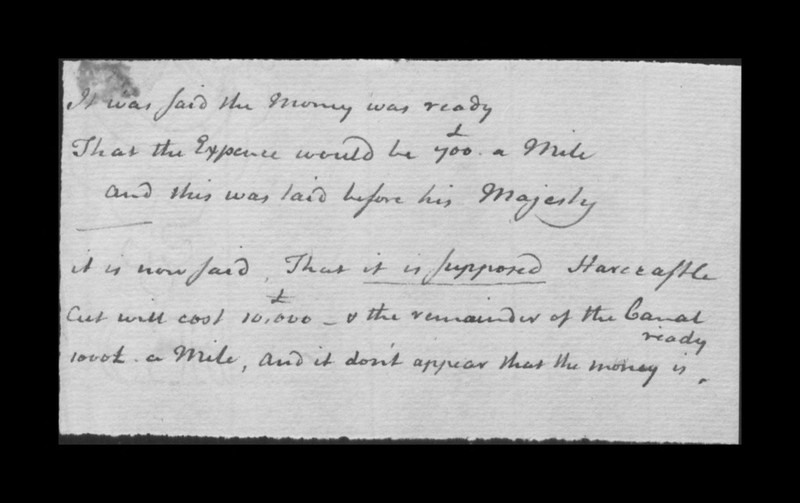 It was said the Money was ready
That the Expence would be £700. a Mile
and this was laid before his Majesty
it is now said, That it is supposed Harecastle
Cut will cost £10,000 - & the remainder of the Canal
1000£. a Mile, and it don't appear that the money is ready.